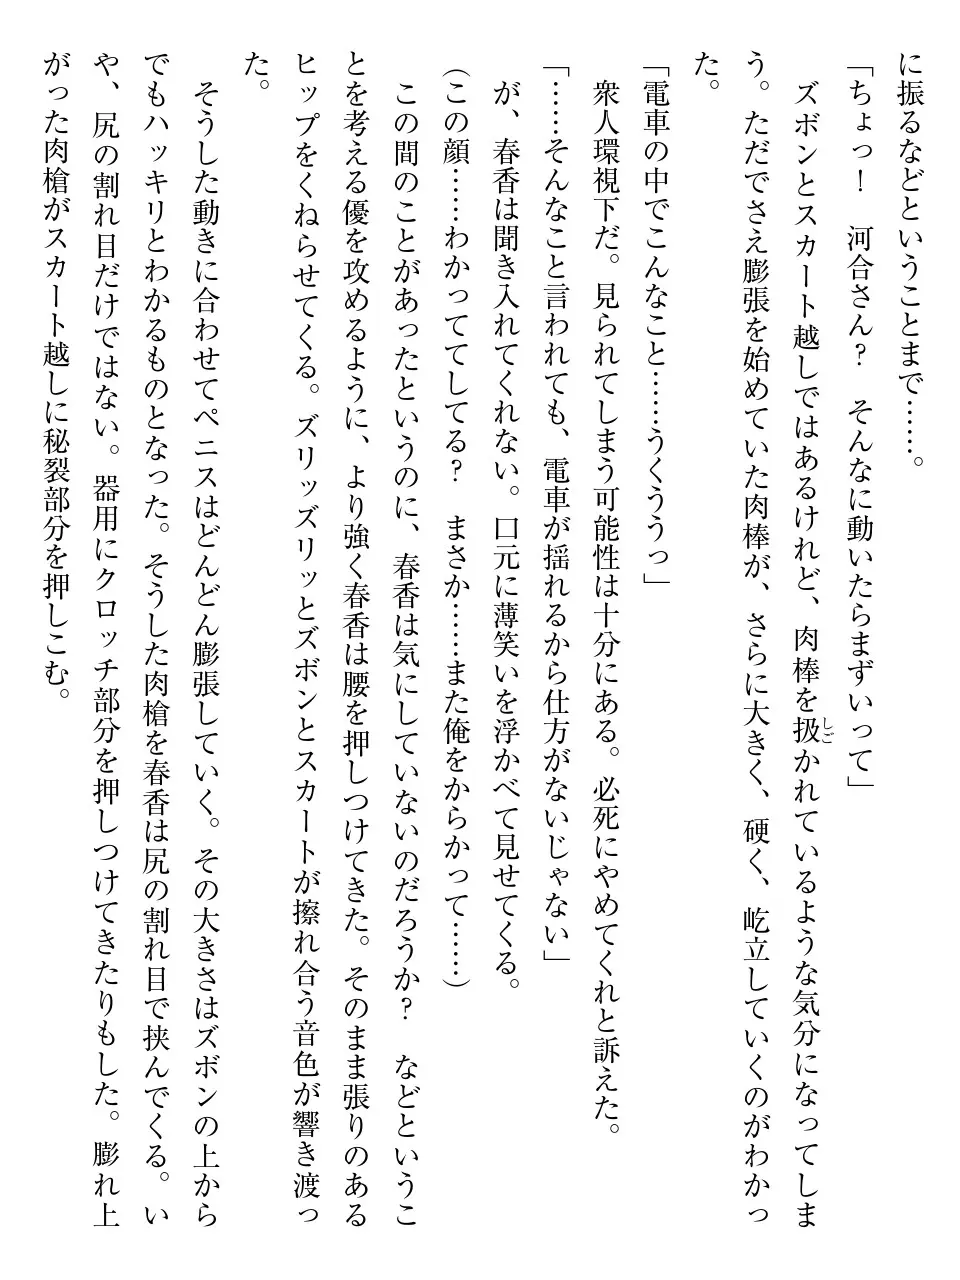 に振るなどということまで……。
「ちょっ！　河合さん？　そんなに動いたらまずいって」
　ズボンとスカート越しではあるけれど、肉棒を扱かれているような気分になってしま
しご
う。ただでさえ膨張を始めていた肉棒が、さらに大きく、硬く、屹立していくのがわかっ
た。
「電車の中でこんなこと……うくううっ」
　衆人環視下だ。見られてしまう可能性は十分にある。必死にやめてくれと訴えた。
「……そんなこと言われても、電車が揺れるから仕方がないじゃない」
　が、春香は聞き入れてくれない。口元に薄笑いを浮かべて見せてくる。
（この顔……わかっててしてる？　まさか……また俺をからかって……）
　この間のことがあったというのに、春香は気にしていないのだろうか？　などというこ
とを考える優を攻めるように、より強く春香は腰を押しつけてきた。そのまま張りのある
ヒップをくねらせてくる。ズリッズリッとズボンとスカートが擦れ合う音色が響き渡っ
た。
　そうした動きに合わせてペニスはどんどん膨張していく。その大きさはズボンの上から
でもハッキリとわかるものとなった。そうした肉槍を春香は尻の割れ目で挟んでくる。い
や、尻の割れ目だけではない。器用にクロッチ部分を押しつけてきたりもした。膨れ上
がった肉槍がスカート越しに秘裂部分を押しこむ。